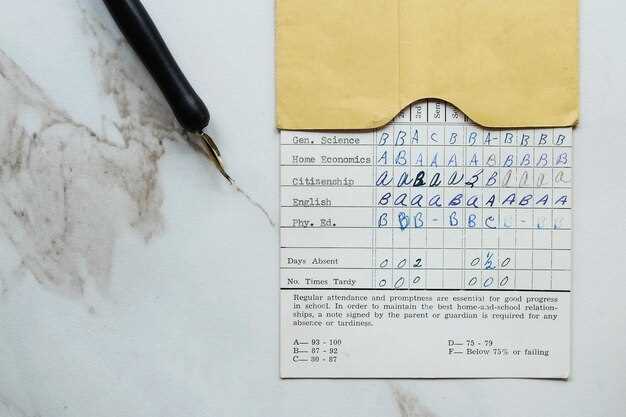 3rd Sem
Gen. Science B B A C B B A- B B B B
Home Economics A B A A A A B B B B
Citizenship a a B a a B a a a a
English B a a a B a A A B A A
Phy. Ed. B B B - B B C - -
Days Absent 0 0 2 0 ½ 0
No. Times Tardy 0 0 0 0 0 0
Regular attendance and promptness are essential for good progress
in school. In order to maintain the best home-and-school relation-
ships, a note signed by the parent or guardian is required for any
absence or tardiness.
A— 93 - 100 D— 75 - 79
B— 87 - 92 F— Below 75% or failing
C— 80 - 87